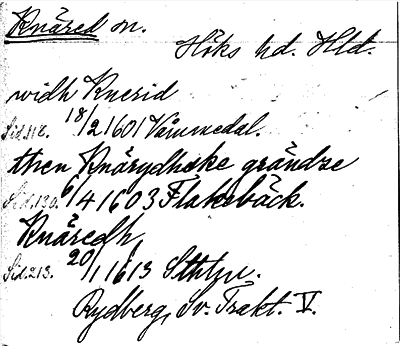 Knäred sn.
Höks hd. Hld.
widh Knerid
Sid. 118. 18/2 1601 Vämmedal.
then Knärydheke grändze
Sid. 130. 6/4 1603 Flakebäck.
Knäredh
Sid. 213. 20/1 1613 Sthlm.
Rydberg, Sv. Trakt. V.